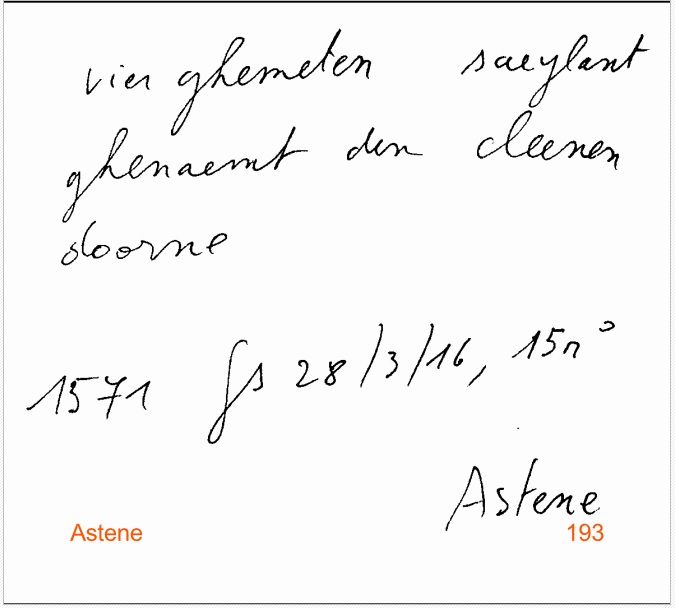 vier ghemeten saeylant
ghenaemt den cleenen
doorne
1571 fs 28/3/16, 15r°
Astene
Astene 193